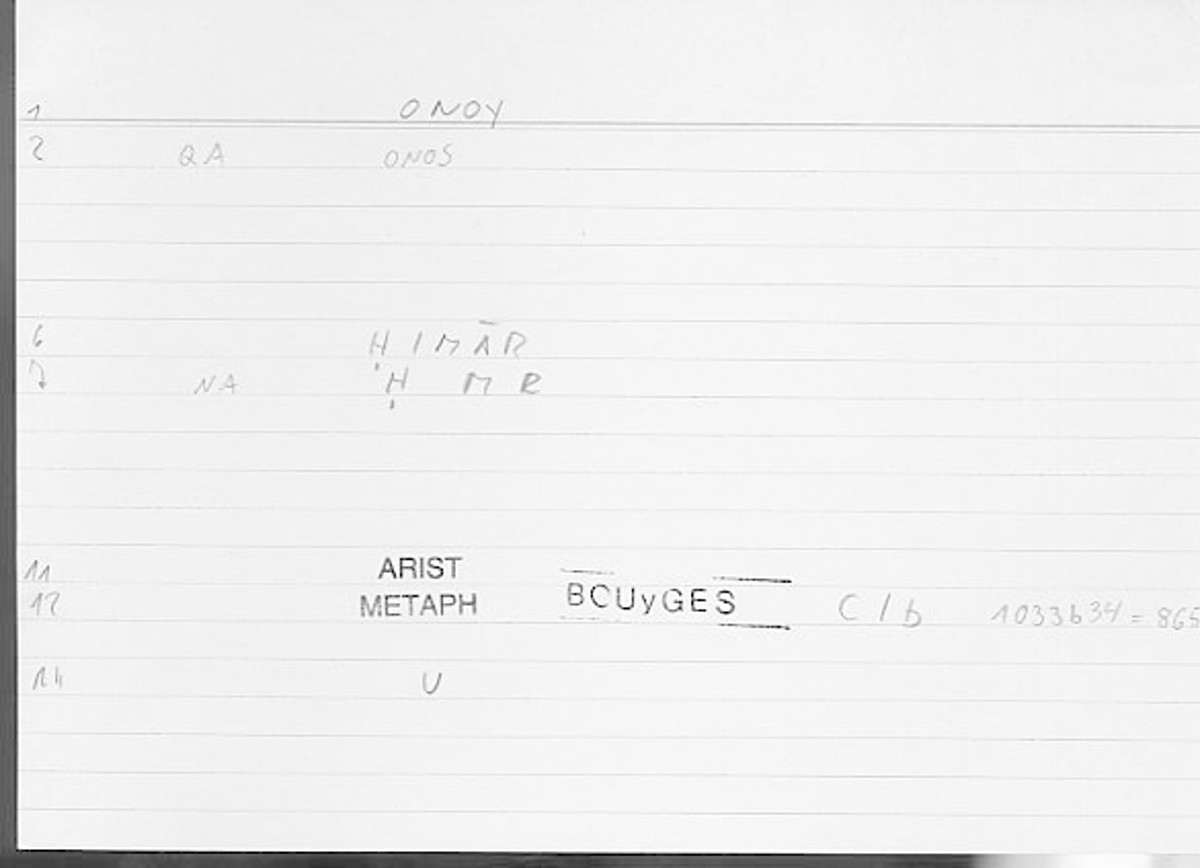 1 ONOY
2 QA ONOS
6 ḤIMĀR
7 NA Ḥ M R
11 ARIST
12 METAPH BOUyGES C/b 1033b34=865
14 U